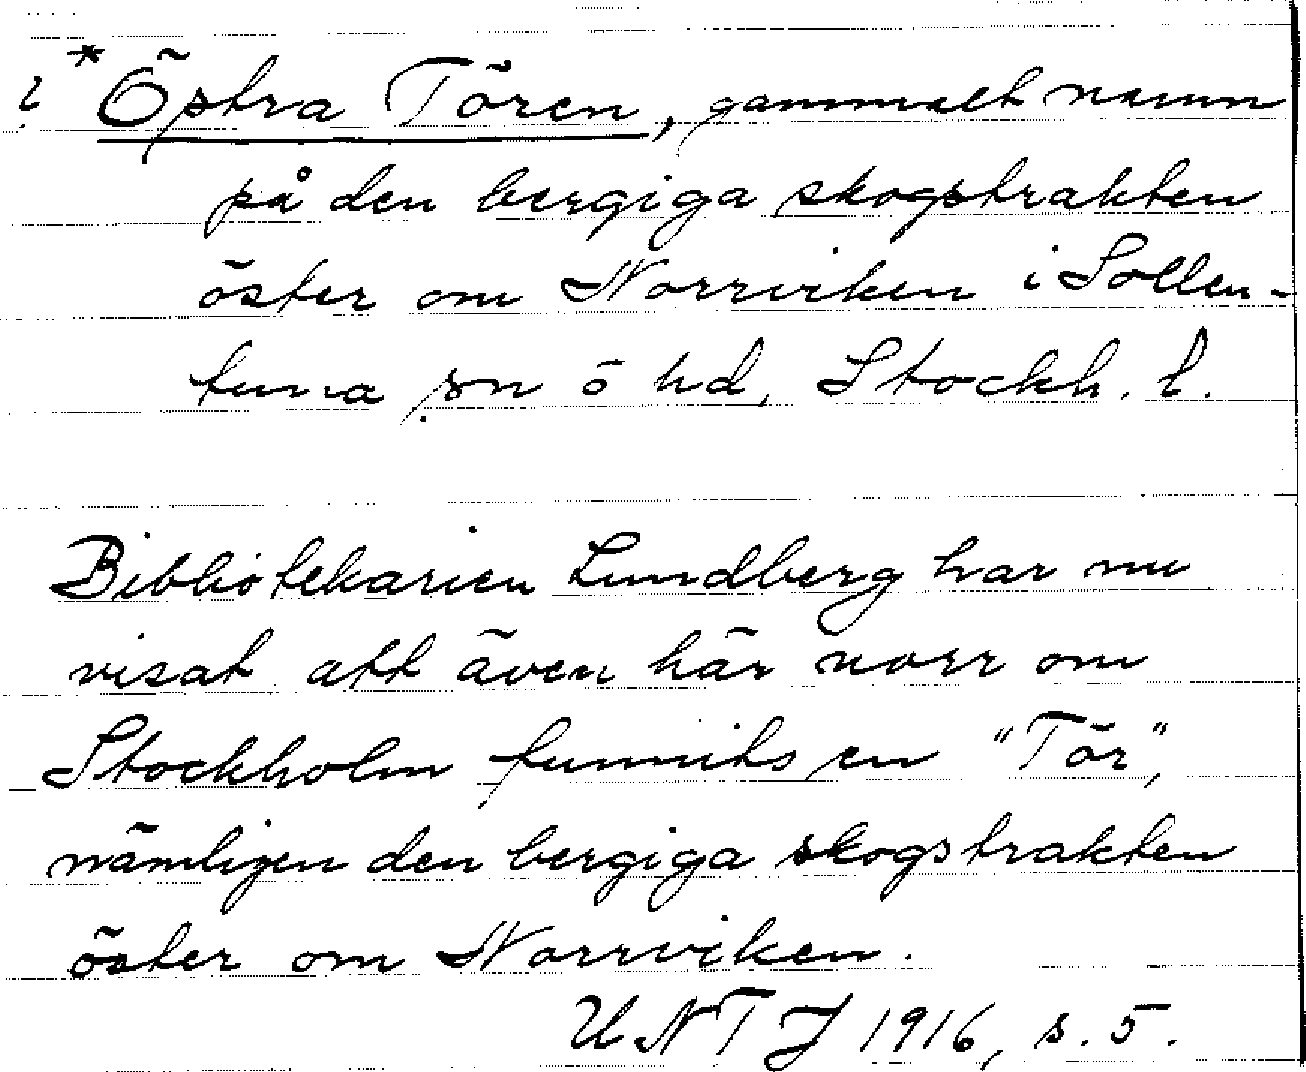 ? *Östra Tören, gammalt namn
på den bergiga skogstrakten
öster om Norrviken i Sollen-
tuna sn o hd, Stockh. l.
Bibliotekarien Lundberg har nu
visat att även här norr om
Stockholm funnits en "Tör",
nämligen den bergiga skogstrakten
öster om Norrviken.
UNTJ 1916, s. 5.